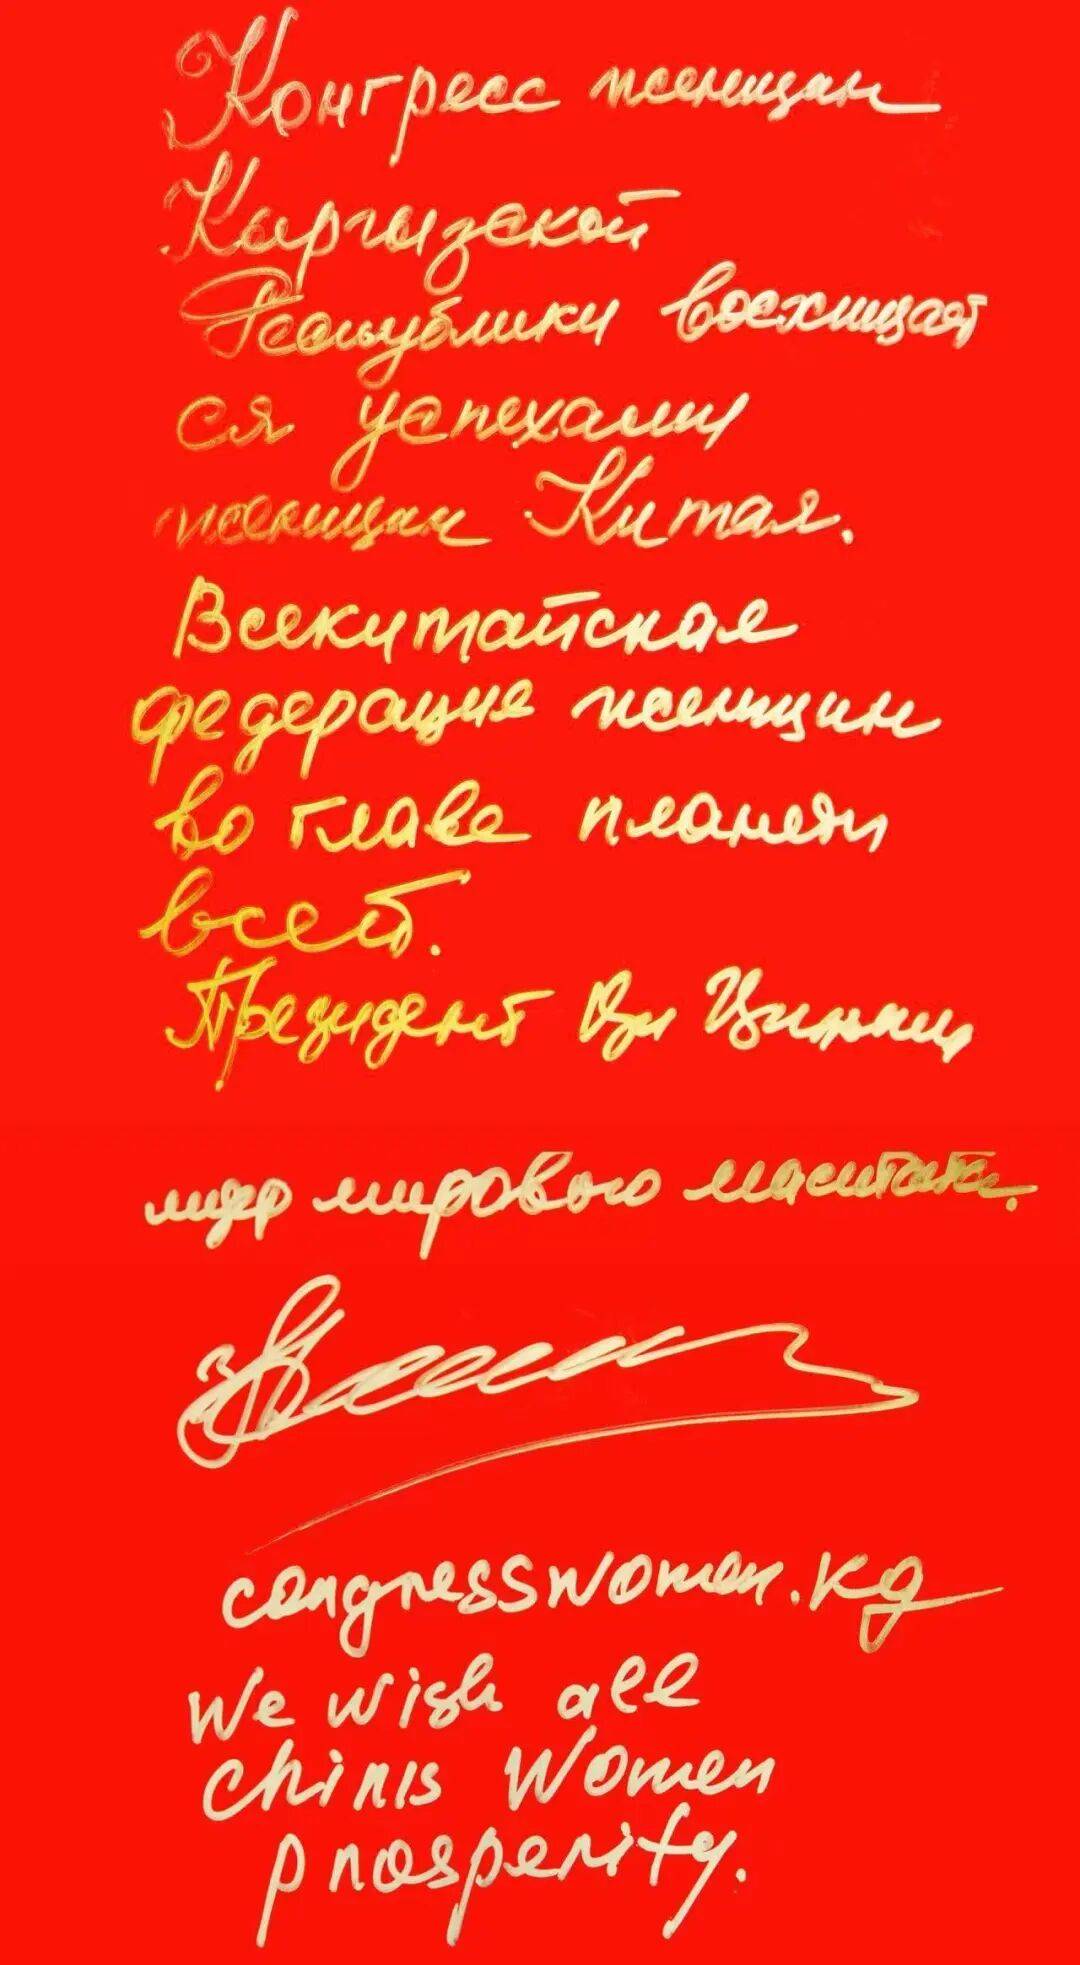 Конгресс женщин
Кыргызской
Республики восхищает
ся успехами
женщин Китая.
Всекитайская
федерация женщин
во главе планеты
всей.
Президент Си Цзинпин
лидер мирового масштаба.
congresswomen.kg
We wish all
chinis women
prosperity.